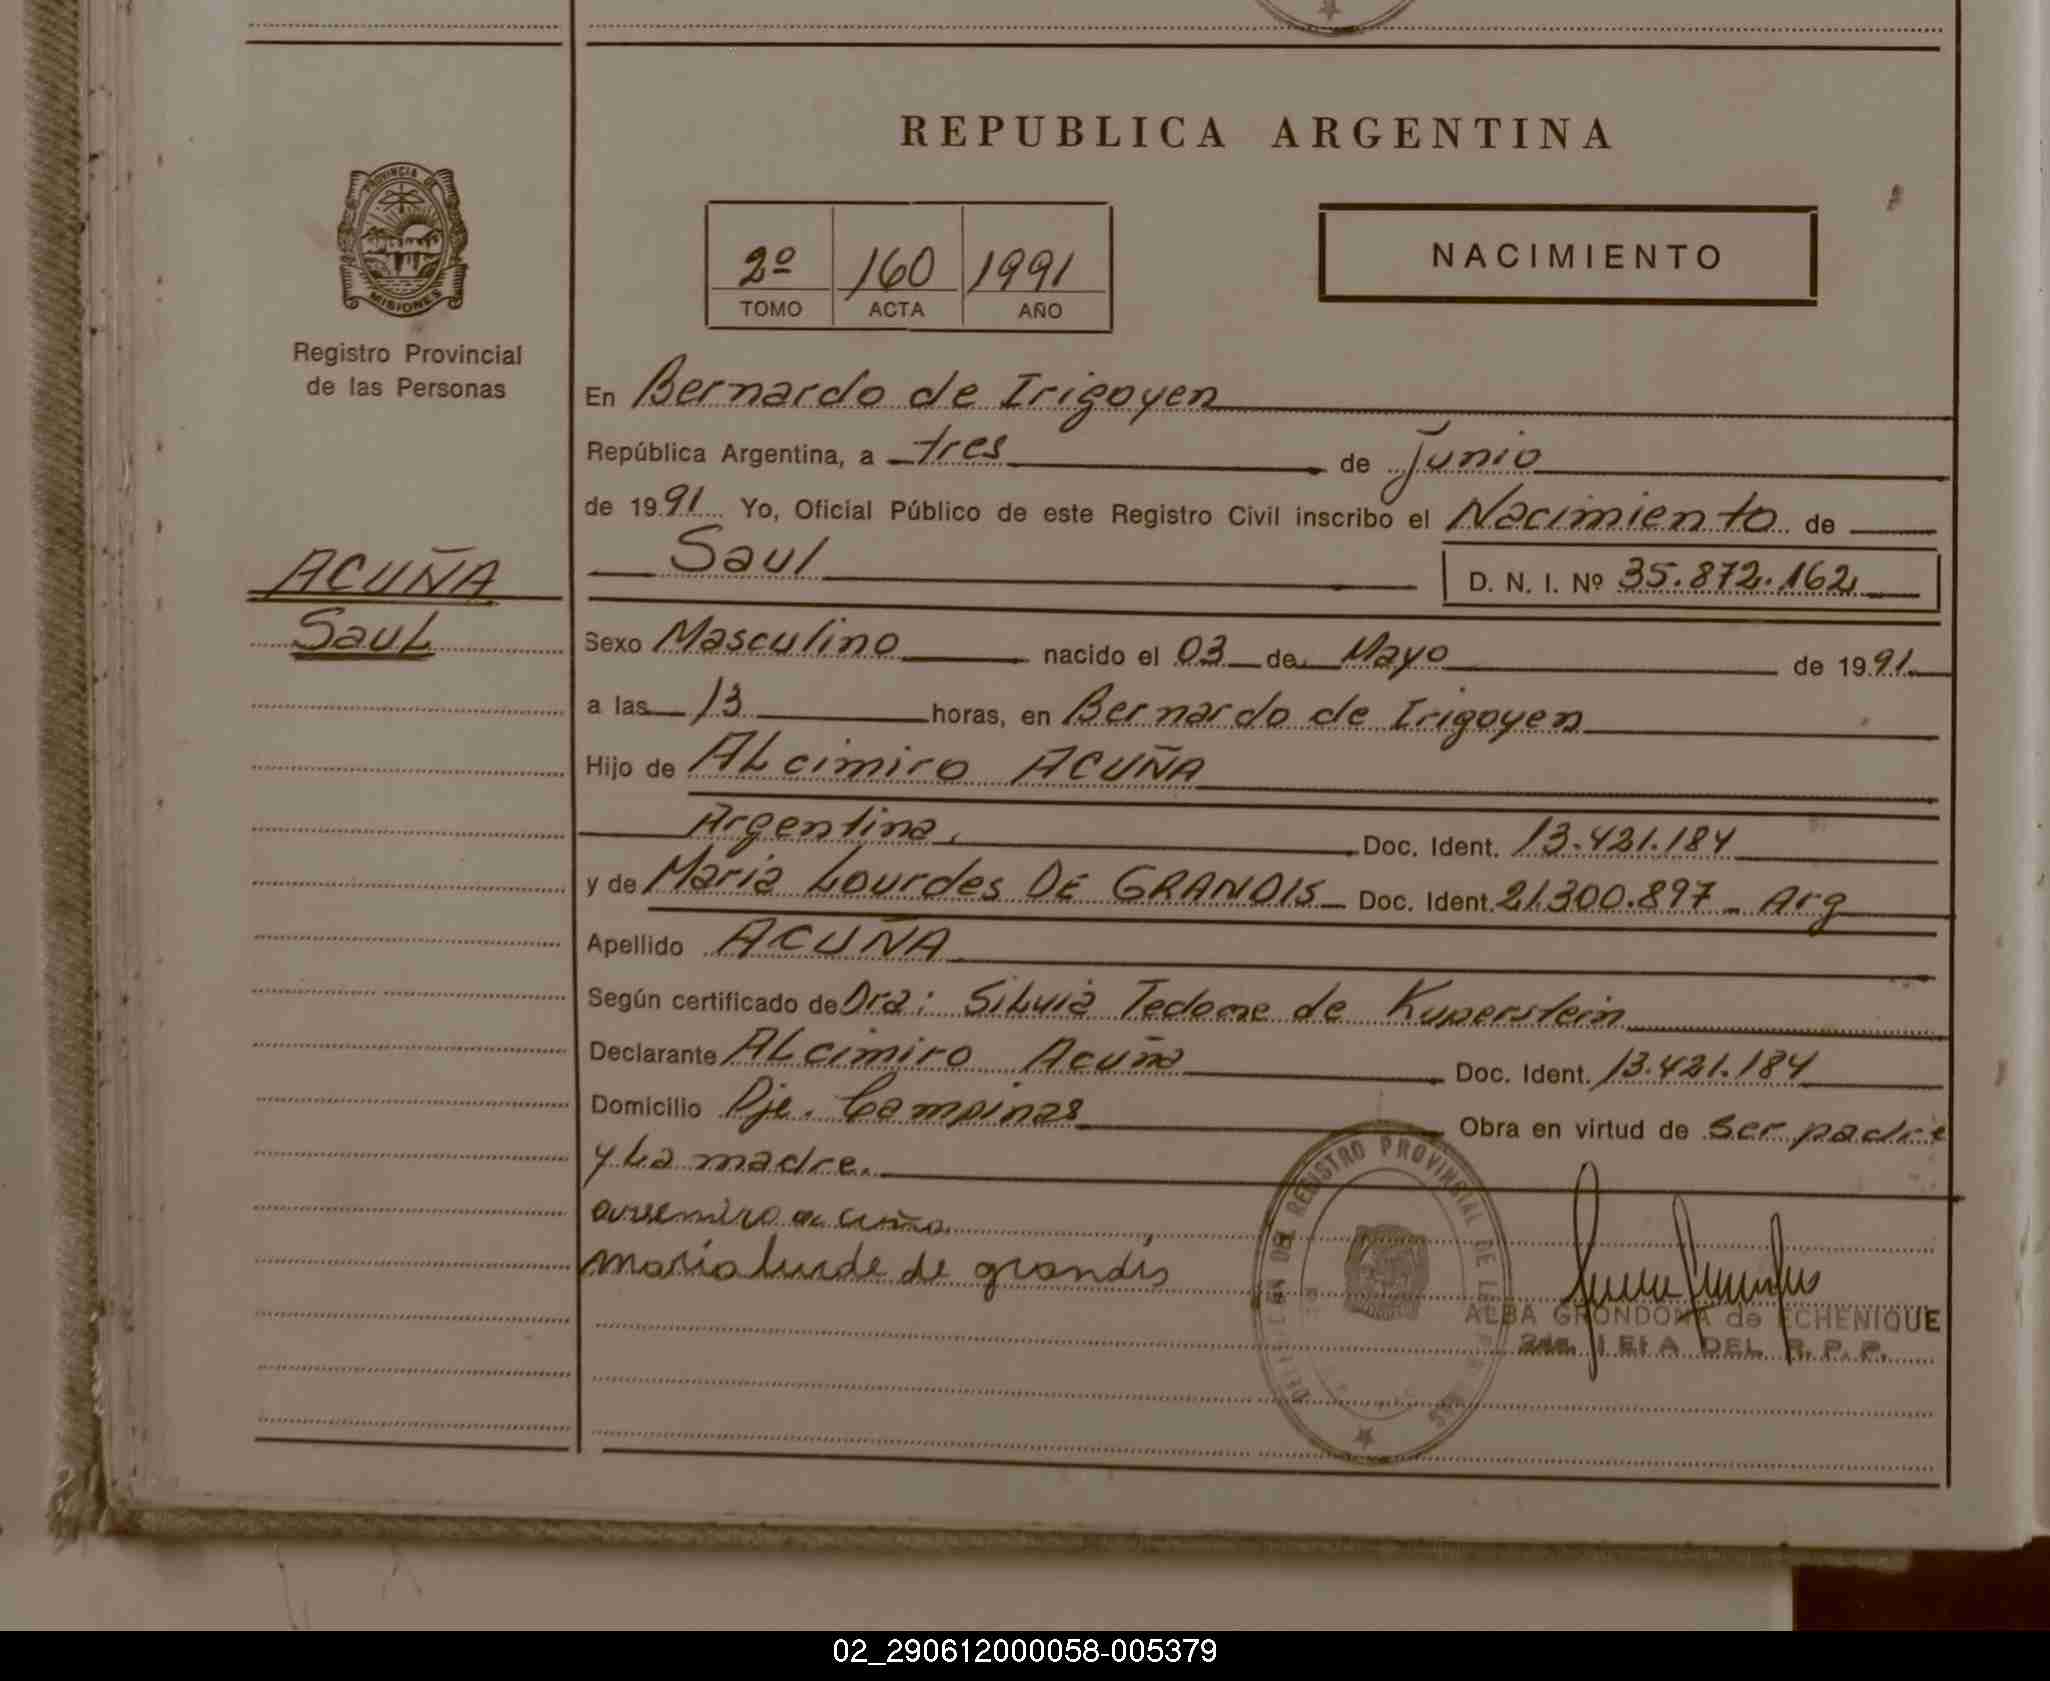 REPUBLICA ARGENTINA
PROVINCIA DE
MISIONES
Registro Provincial
de las Personas
2º 160 1991
TOMO ACTA AÑO
NACIMIENTO
ACUÑA
Saul
En Bernardo de Irigoyen
República Argentina, a tres de Junio
de 1991 Yo, Oficial Público de este Registro Civil inscribo el Nacimiento de
Saul D. N. I. Nº 35.872.162
Sexo Masculino nacido el 03 de Mayo de 1991
a las 13 horas, en Bernardo de Irigoyen
Hijo de ALcimiro ACUÑA
Argentina, Doc. Ident. 13.421.184
y de Maria Lourdes DE GRANDIS Doc. Ident. 21.300.897 - Arg
Apellido ACUÑA
Según certificado de Dra: SiLvia Tedome de Kuperstein
Declarante ALcimiro Acuña Doc. Ident. 13.421.184
Domicilio Pje. Campinas Obra en virtud de ser padre
y La madre.
acuña
maria lurde de grandis
REGISTRO PROVINCIAL DE
ALBA GRONDONA de ECHENIQUE
2da. JEFA DEL R. P. P.
02_290612000058-005379